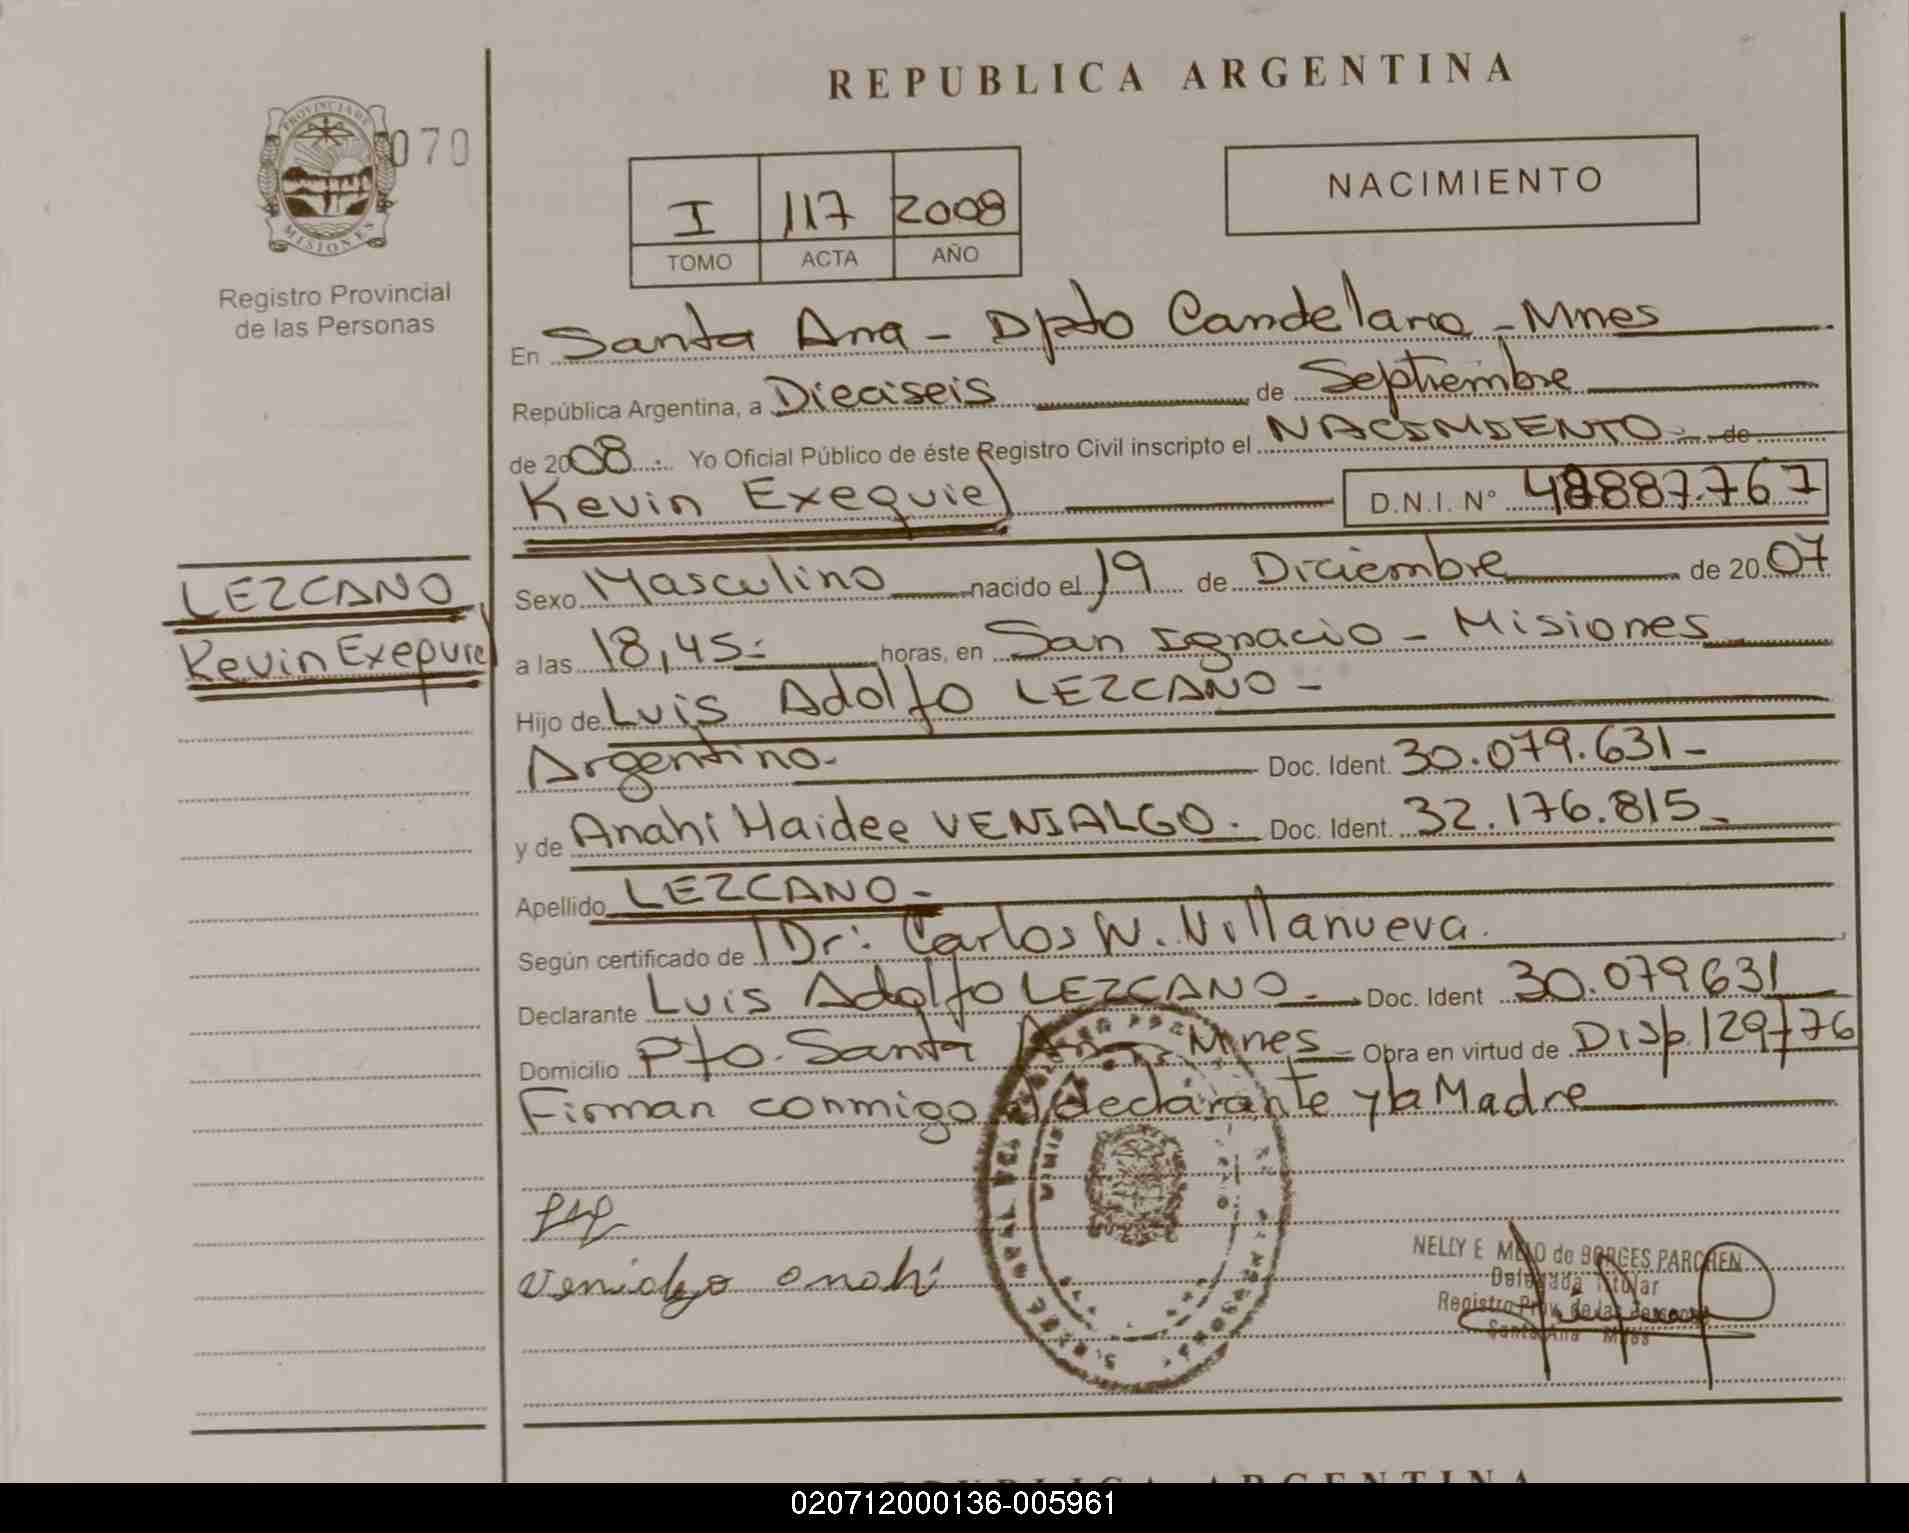 REPUBLICA ARGENTINA
PROVINCIA DE
MISIONES
070
Registro Provincial
de las Personas
I 117 2008
TOMO ACTA AÑO
NACIMIENTO
En Santa Ana - Dpto Candelaria - Mnes
República Argentina, a Dieciseis de Septiembre
de 2008 Yo Oficial Público de éste Registro Civil inscripto el NACIMIENTO de
Kevin Exequiel D.N.I. N° 48887.767
LEZCANO
Kevin Exequiel
Sexo Masculino nacido el 19 de Diciembre de 2007
a las 18,45 horas, en San Ignacio - Misiones
Hijo de Luis Adolfo LEZCANO -
Argentino. Doc. Ident. 30.079.631 -
y de Anahi Haidee VENIALGO. Doc. Ident. 32.176.815 -
Apellido LEZCANO -
Según certificado de Dr: Carlos W. Villanueva.
Declarante Luis Adolfo LEZCANO - Doc. Ident 30.079631
Domicilio Pto. Santa Ana Mnes Obra en virtud de Disp. 129/76
Firman conmigo el declarante y la Madre
Venialgo anahi
NELLY E MELO de BORGES PARCHEN
Delegada Titular
Registro Prov. de las Personas
Santa Ana Mnes
REPUBLICA ARGENTINA
020712000136-005961